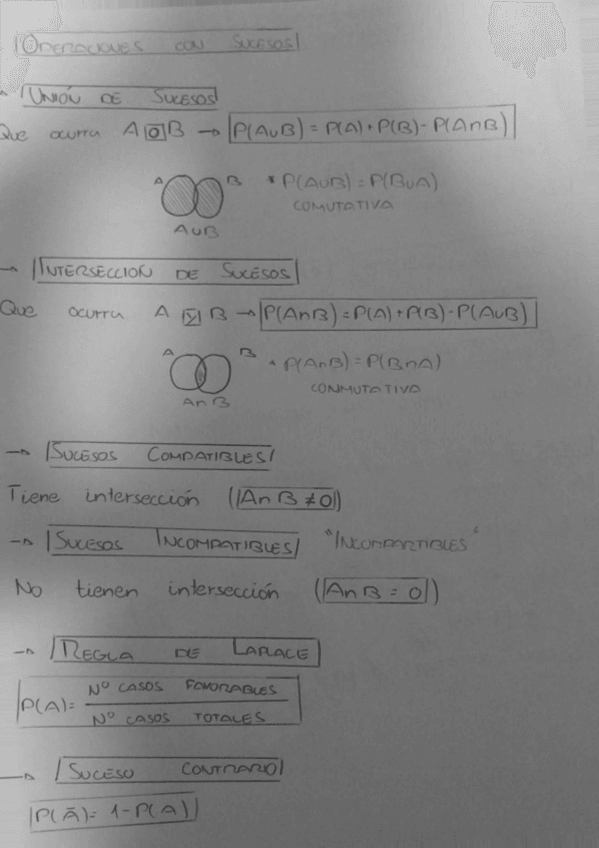 OPERACIONES CON SUCESOS
UNIÓN DE SUCESOS
Que ocurra A o B → P(A∪B) = P(A) + P(B) - P(A∩B)
A B * P(A∪B) = P(B∪A)
COMUTATIVA
A∪B
→ INTERSECCION DE SUCESOS
Que ocurra A y B → P(A∩B) = P(A) + P(B) - P(A∪B)
A B * P(A∩B) = P(B∩A)
CONMUTATIVA
A∩B
→ SUCESOS COMPATIBLES
Tiene intersección (A∩B ≠ 0)
→ SUCESOS INCOMPATIBLES "INCOMPARTIBLES"
No tienen intersección (A∩B = 0)
→ REGLA DE LAPLACE
P(A) = Nº CASOS FAVORABLES
Nº CASOS TOTALES
→ SUCESO CONTRARIO
P(Ā) = 1 - P(A)